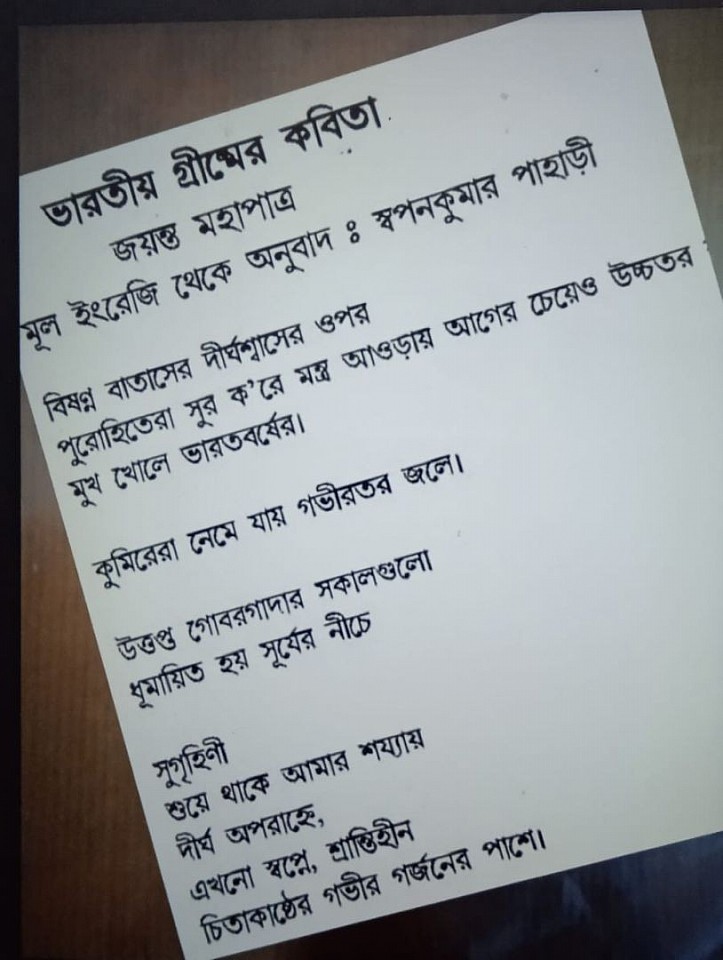 ভারতীয় গ্রীষ্মের কবিতা
জয়ন্ত মহাপাত্র
মূল ইংরেজি থেকে অনুবাদ : স্বপনকুমার পাহাড়ী
বিষণ্ণ বাতাসের দীর্ঘশ্বাসের ওপর
পুরোহিতেরা সুর ক'রে মন্ত্র আওড়ায় আগের চেয়েও উচ্চতর
মুখ খোলে ভারতবর্ষের।
কুমিরেরা নেমে যায় গভীরতর জলে।
উত্তপ্ত গোবরগাদার সকালগুলো
ধূমায়িত হয় সূর্যের নীচে
সুগৃহিনী
শুয়ে থাকে আমার শয্যায়
দীর্ঘ অপরাহ্নে,
এখনো স্বপ্নে, শ্রান্তিহীন
চিতাকাষ্ঠের গভীর গর্জনের পাশে।